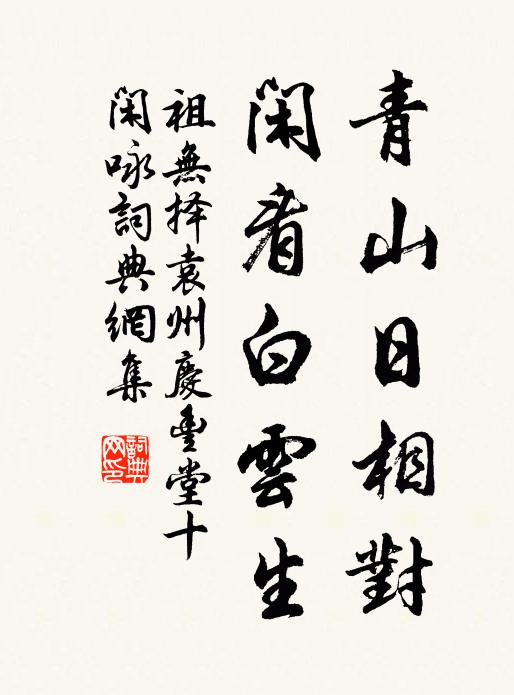 青山日相對
閑看白雲生
祖無择袁州慶豐堂十
閑咏詞典網集
詞典
网印